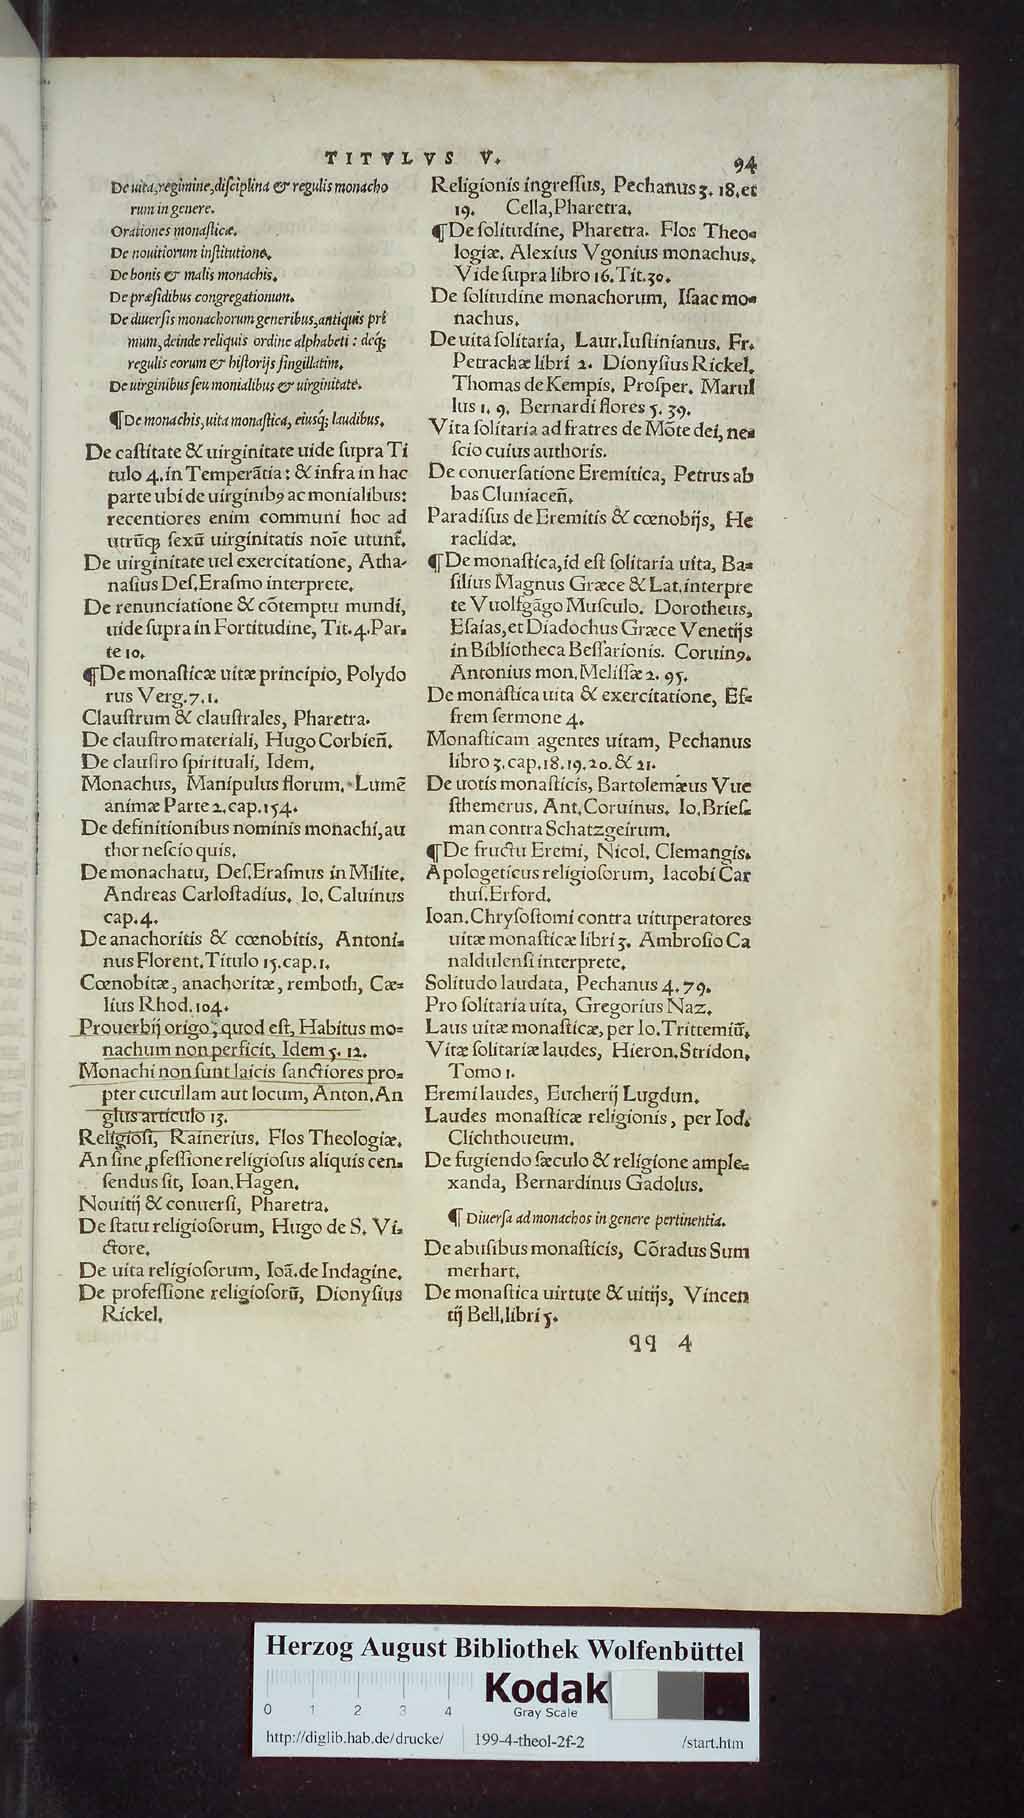 TITVLVS V.
94
De uita, regimine, disciplina & regulis monacho
rum in genere.
Orationes monasticæ.
De nouitiorum institutione.
De bonis & malis monachis.
De præsidibus congregationum.
De diuersis monachorum generibus, antiquis pri
mum, deinde reliquis ordine alphabeti: deq́;
regulis eorum & historijs singillatim.
De uirginibus seu monialibus & uirginitate.
¶ De monachis, uita monastica, eiusq́; laudibus.
De castitate & uirginitate uide supra Ti
tulo 4. in Temperãtia: & infra in hac
parte ubi de uirginibꝰ ac monialibus:
recentiores enim communi hoc ad
utrũq; sexũ uirginitatis noĩe utunt̃.
De uirginitate uel exercitatione, Atha-
nasius Des. Erasmo interprete.
De renunciatione & cõtemptu mundi,
uide supra in Fortitudine, Tit. 4. Par-
te 10.
¶ De monasticæ uitæ principio, Polydo
rus Verg. 7. 1.
Claustrum & claustrales, Pharetra.
De claustro materiali, Hugo Corbieñ.
De claustro spirituali, Idem.
Monachus, Manipulus florum. Lumẽ
animæ Parte 2. cap. 154.
De definitionibus nominis monachi, au
thor nescio quis.
De monachatu, Des. Erasmus in Milite.
Andreas Carlostadius. Io. Caluinus
cap. 4.
De anachoritis & cœnobitis, Antoni-
nus Florent. Titulo 15. cap. 1.
Cœnobitæ, anachoritæ, remboth, Cæ-
lius Rhod. 104.
Prouerbij origo, quod est, Habitus mo-
nachum non perficit, Idem 5. 12.
Monachi non sunt laicis sanctiores pro-
pter cucullam aut locum, Anton. An
glus articulo 13.
Religiosi, Rainerius. Flos Theologiæ.
An sine ꝓfessione religiosus aliquis cen-
sendus sit, Ioan. Hagen.
Nouitij & conuersi, Pharetra.
De statu religiosorum, Hugo de S. Vi-
ctore.
De uita religiosorum, Ioã. de Indagine.
De professione religiosorũ, Dionysius
Rickel.
Religionis ingressus, Pechanus 3. 18. et
19. Cella, Pharetra.
¶ De solitudine, Pharetra. Flos Theo-
logiæ. Alexius Vgonius monachus.
Vide supra libro 16. Tit. 30.
De solitudine monachorum, Isaac mo-
nachus.
De uita solitaria, Laur. Iustinianus. Fr.
Petrachæ libri 2. Dionysius Rickel.
Thomas de Kempis. Prosper. Marul
lus 1. 9. Bernardi flores 5. 39.
Vita solitaria ad fratres de Mõte dei, ne-
scio cuius authoris.
De conuersatione Eremitica, Petrus ab
bas Cluniaceñ.
Paradisus de Eremitis & cœnobijs, He
raclidæ.
¶ De monastica, id est solitaria uita, Ba-
silius Magnus Græce & Lat. interpre
te Vuolfgãgo Musculo. Dorotheus,
Esaias, et Diadochus Græce Venetijs
in Bibliotheca Bessarionis. Coruinꝰ.
Antonius mon. Melissæ 2. 95.
De monastica uita & exercitatione, Ef-
frem sermone 4.
Monasticam agentes uitam, Pechanus
libro 3. cap. 18. 19. 20. & 21.
De uotis monasticis, Bartolemæus Vue
sthemerus. Ant. Coruinus. Io. Bries-
man contra Schatzgeirum.
¶ De fructu Eremi, Nicol. Clemangis.
Apologeticus religiosorum, Iacobi Car
thus. Erford.
Ioan. Chrysostomi contra uituperatores
uitæ monasticæ libri 3. Ambrosio Ca
naldulensi interprete.
Solitudo laudata, Pechanus 4. 79.
Pro solitaria uita, Gregorius Naz.
Laus uitæ monasticæ, per Io. Trittemiũ.
Vitæ solitariæ laudes, Hieron. Stridon.
Tomo 1.
Eremi laudes, Eucherij Lugdun.
Laudes monasticæ religionis, per Iod.
Clichthoueum.
De fugiendo sæculo & religione ample-
xanda, Bernardinus Gadolus.
¶ Diuersa ad monachos in genere pertinentia.
De abusibus monasticis, Cõradus Sum
merhart.
De monastica uirtute & uitijs, Vincen
tij Bell. libri 5.
qq 4
Herzog August Bibliothek Wolfenbüttel
Kodak
Gray Scale
0 1 2 3 4
http://diglib.hab.de/drucke/ 199-4-theol-2f-2 /start.htm